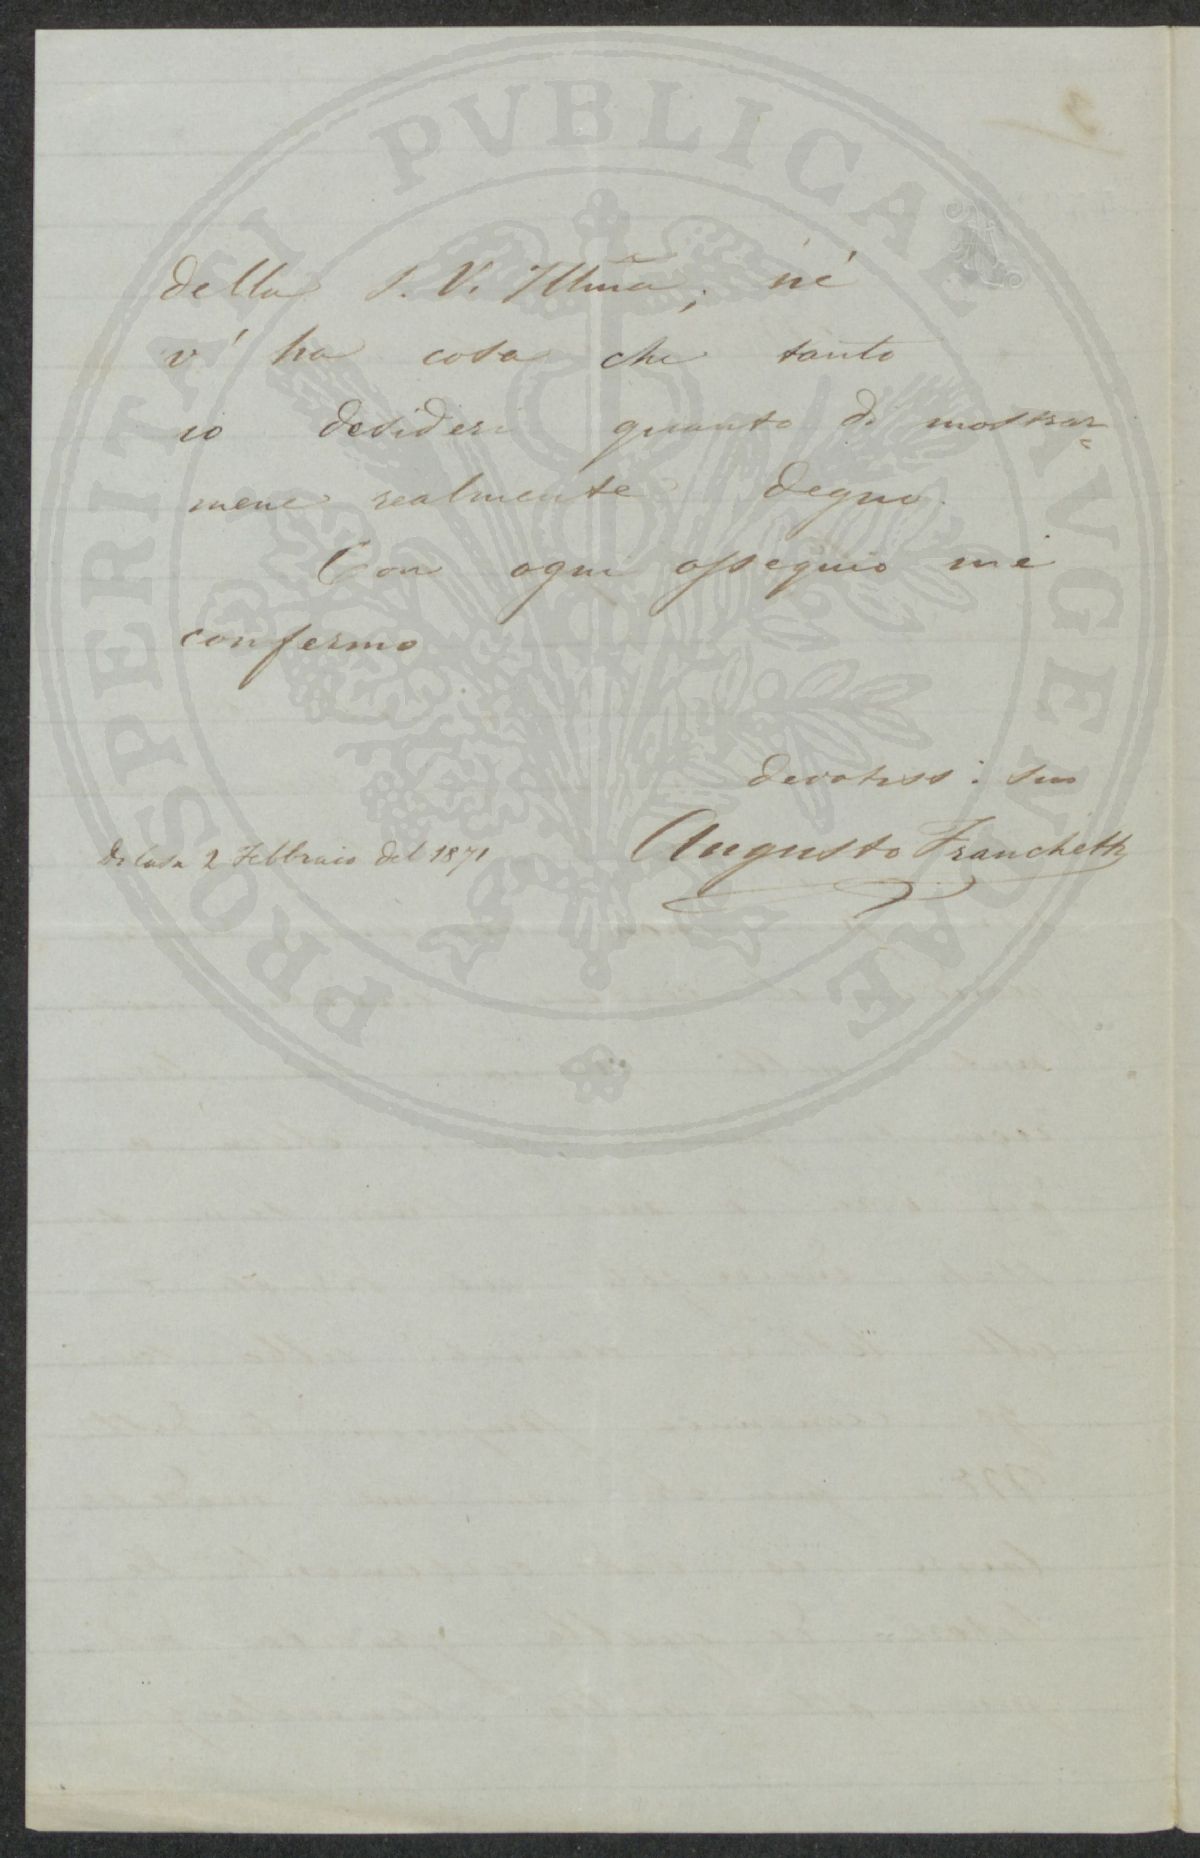 della S. V. Illm̃a; nè
v' ha cosa che tanto
io desideri quanto di mostrar=
mene realmente degno.
Con ogni ossequio mi
confermo
devotiss: suo
Di Casa 2 Febbraio del 1871
Augusto Franchetti
PROSPERITATI PVBLICAE AVGENDAE